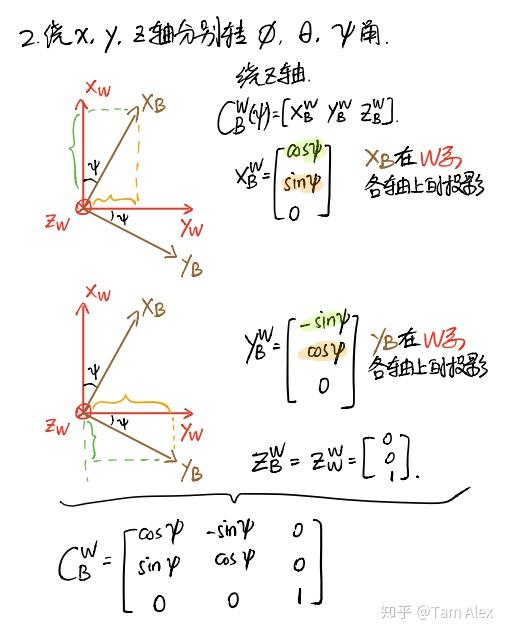 2.绕x, y, z轴分别转 ϕ, θ, ψ角.
绕z轴.
C_B^W(ψ)=[X_B^W Y_B^W Z_B^W].
X_W
X_B
ψ
ψ
Z_W
Y_W
Y_B
X_B^W=
cosψ
sinψ
0
X_B在W系
各轴上的投影
X_W
X_B
ψ
ψ
Z_W
Y_W
Y_B
Y_B^W=
-sinψ
cosψ
0
Y_B在W系
各轴上的投影
Z_B^W = Z_W^W =
0
0
1
.
C_B^W =
cosψ -sinψ 0
sinψ cosψ 0
0 0 1
知乎 @Tam Alex